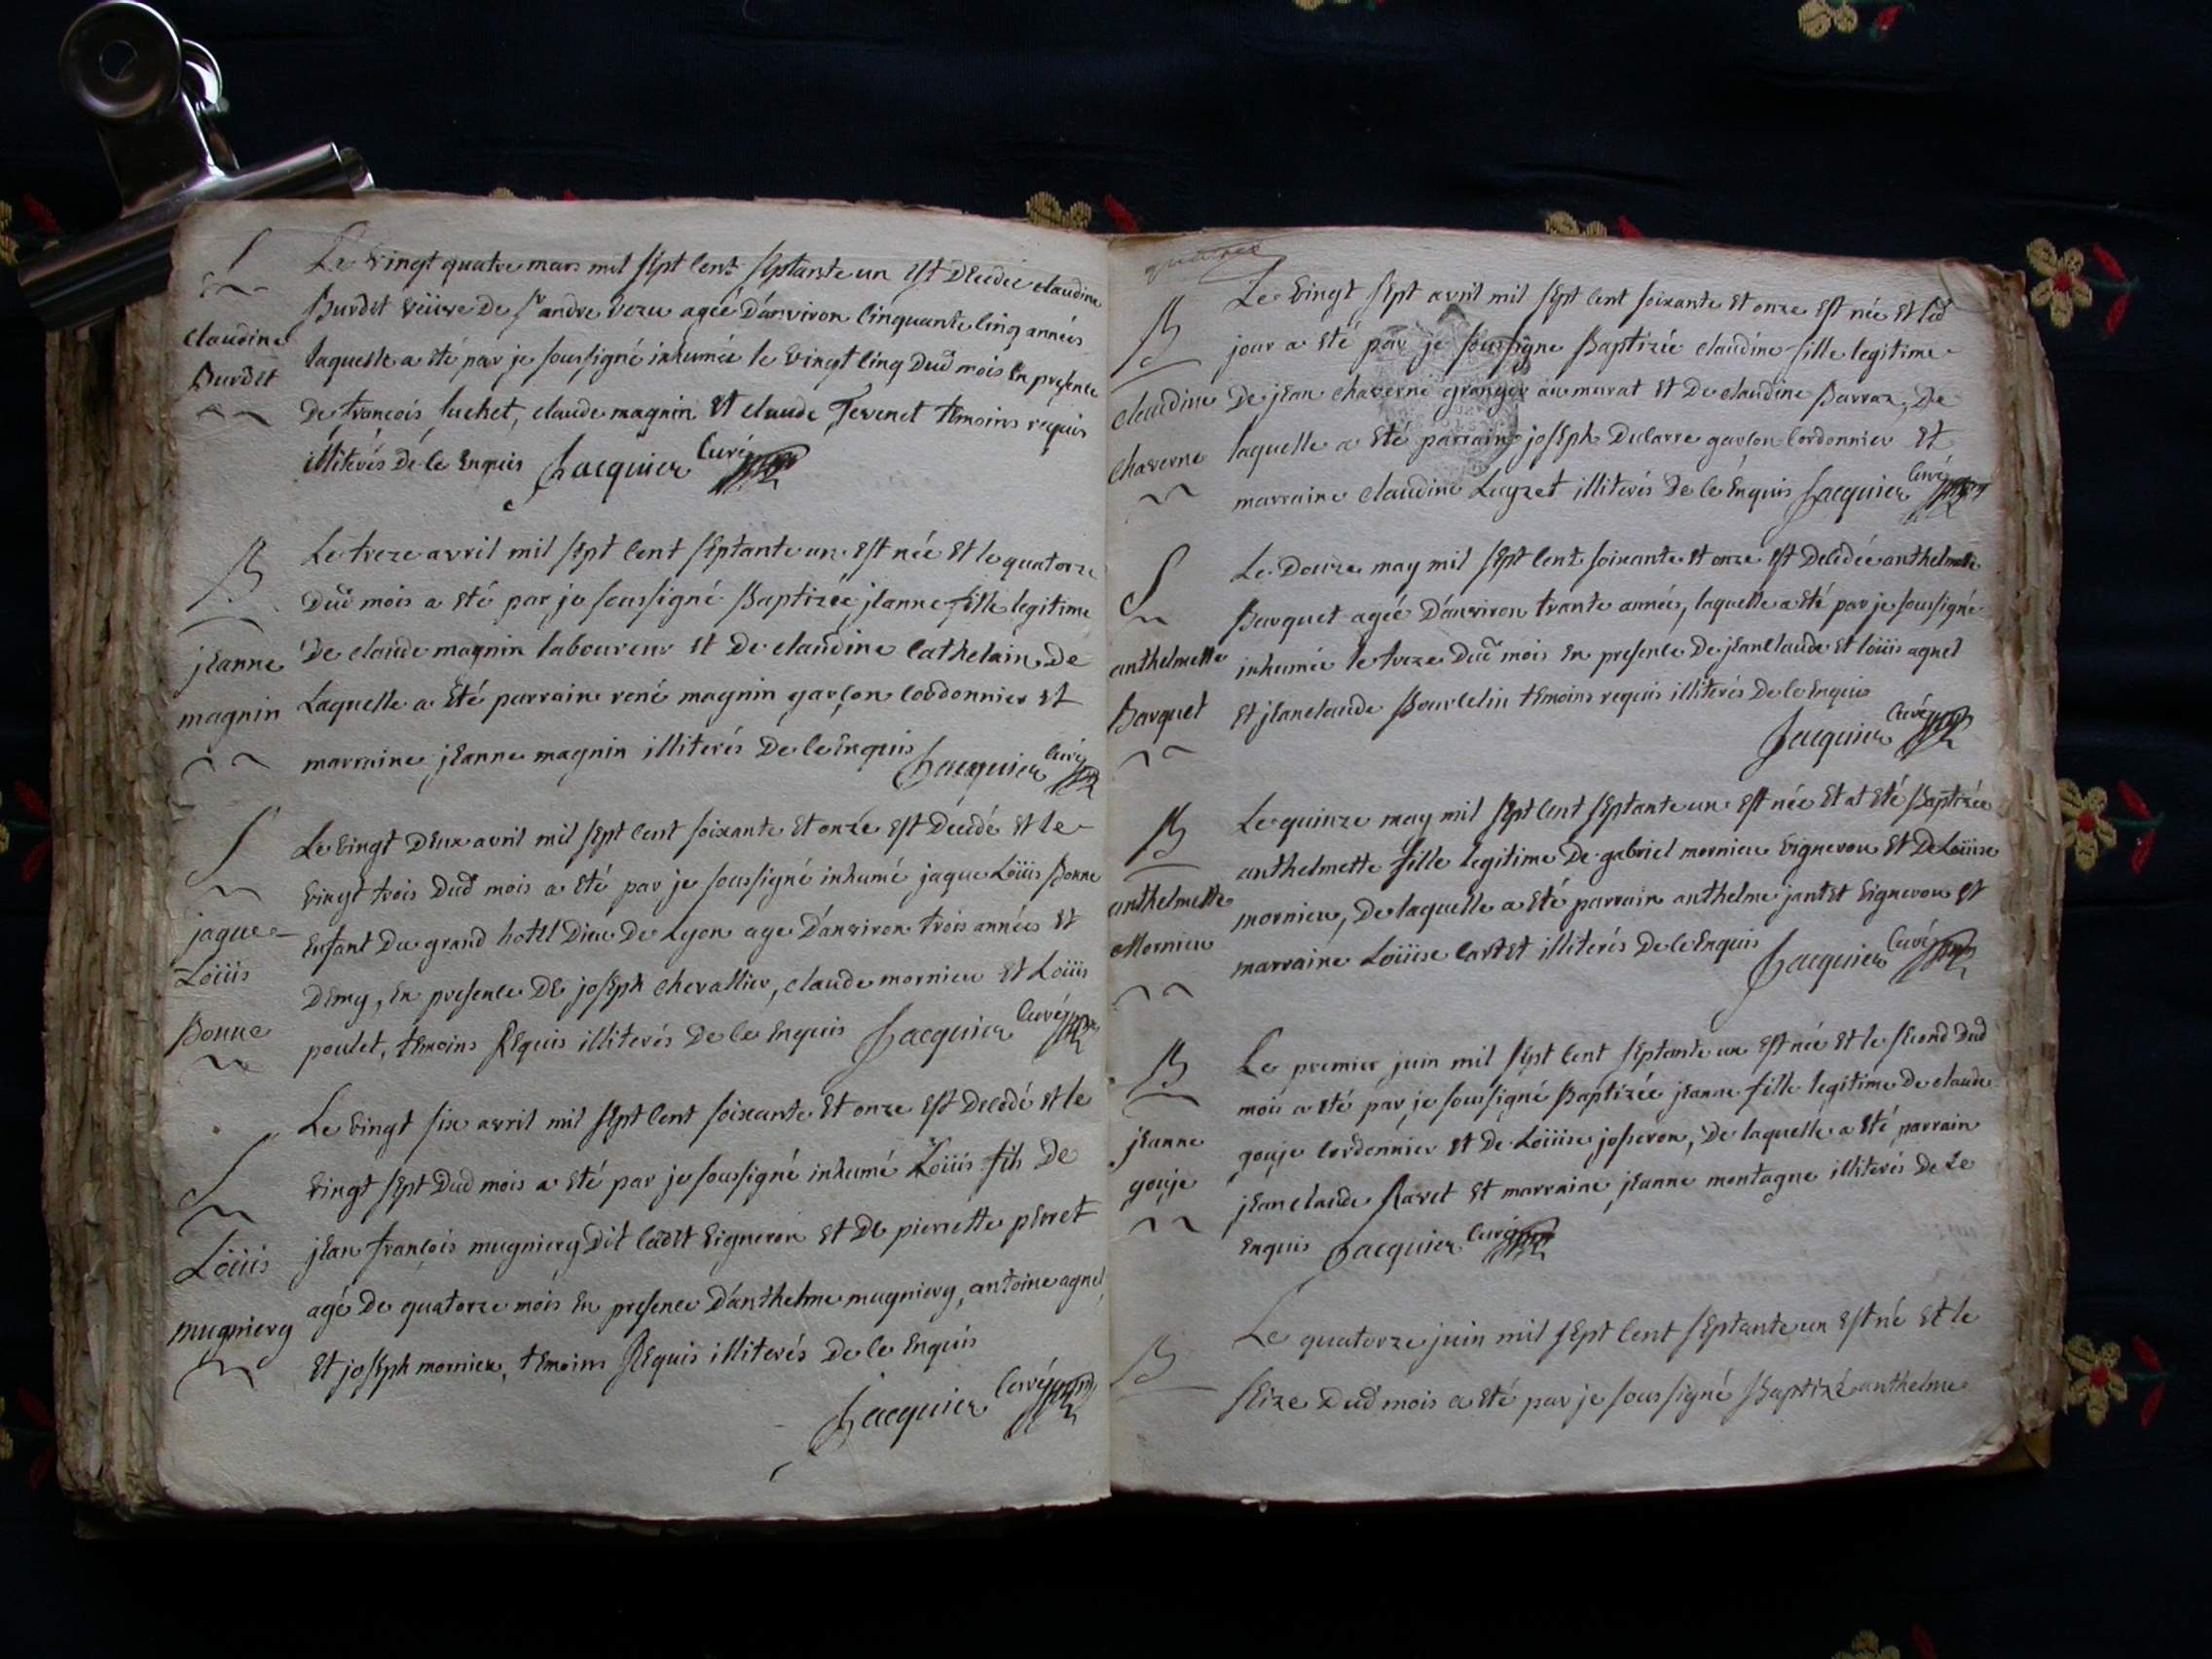 S
claudine
Burdet
Le vingt quatre mars mil sept cent septante un est decedée claudine
Burdet veuve de Sr andre vezu agée d'anviron cinquante cinq années
laquelle a été par je soussigné inhumée le vingt cinq dud mois en presence
de françois luchet, claude magnin et claude Tevenet temoins requis
illiterés de ce enquis Jacquier curé
B
jeanne
magnin
Le treze avril mil sept cent septante un est née et le quatorze
dud mois a été par je soussigné Baptizée jeanne fille legitime
de claude magnin laboureur et de claudine cathelain, de
Laquelle a été parrain rené magnin garçon cordonnier et
marraine jeanne magnin illiterés de ce enquis Jacquier curé
S
jaque
Loüis
Bonne
Le vingt deux avril mil sept cent soixante et onze est decedé et le
vingt trois dud mois a été par je soussigné inhumé jaque Loüis Bonne
enfant du grand hotel Dieu de Lyon age d'anviron trois années et
demy, en presence de joseph chevallier, claude mornieu et Loüis
poulet, temoins Requis illiterés de ce enquis Jacquier curé
S
Loüis
mugniery
Le vingt six avril mil sept cent soixante et onze est decedé et le
vingt sept dud mois a été par je soussigné inhumé Loüis fils de
jean françois mugniery dit cadet vigneron et de pierrette perret
agé de quatorze mois en presence d'anthelme mugniery, antoine agnel,
et joseph mornieu, temoins Requis illiterés de ce enquis
Jacquier curé
B
claudine
chaverne
Le vingt sept avril mil sept cent soixante et onze est née et led
jour a été par je soussigne Baptizée claudine fille legitime
de jean chaverne granger au murat et de claudine Barraz, de
laquelle a été parrain joseph Ducarre garçon cordonnier et
marraine claudine Layzet illiterés de ce enquis Jacquier curé
S
anthelmette
Barquet
Le Douze may mil sept cent soixante et onze est decedée anthelmette
Barquet agée d'anviron trante année, laquelle a été par je soussigné
inhumée le treze dud mois en presence de jeanclaude et loüis agnel
et jeanclaude Bourcelin temoins requis illiterés de ce enquis
Jacquier curé
B
anthelmette
Mornieu
Le quinze may mil sept cent septante un est née et at été Baptizée
anthelmette fille legitime de gabriel mornieu vigneron et de Loüise
mornieu, de laquelle a été parrain anthelme jantet vigneron et
marraine Loüise cartet illiterés de ce enquis Jacquier curé
B
jeanne
gouje
Le premier juin mil sept cent septante un est née et le second dud
mois a été par je soussigné Baptizée jeanne fille legitime de claude
gouje cordonnier et de Loüise josseron, de laquelle a été parrain
jeanclaude Ravet et marraine jeanne montagne illiterés de ce
enquis Jacquier curé
B
Le quatorze juin mil sept cent septante un est né et le
seize dud mois a été par je soussigné Baptizé anthelme